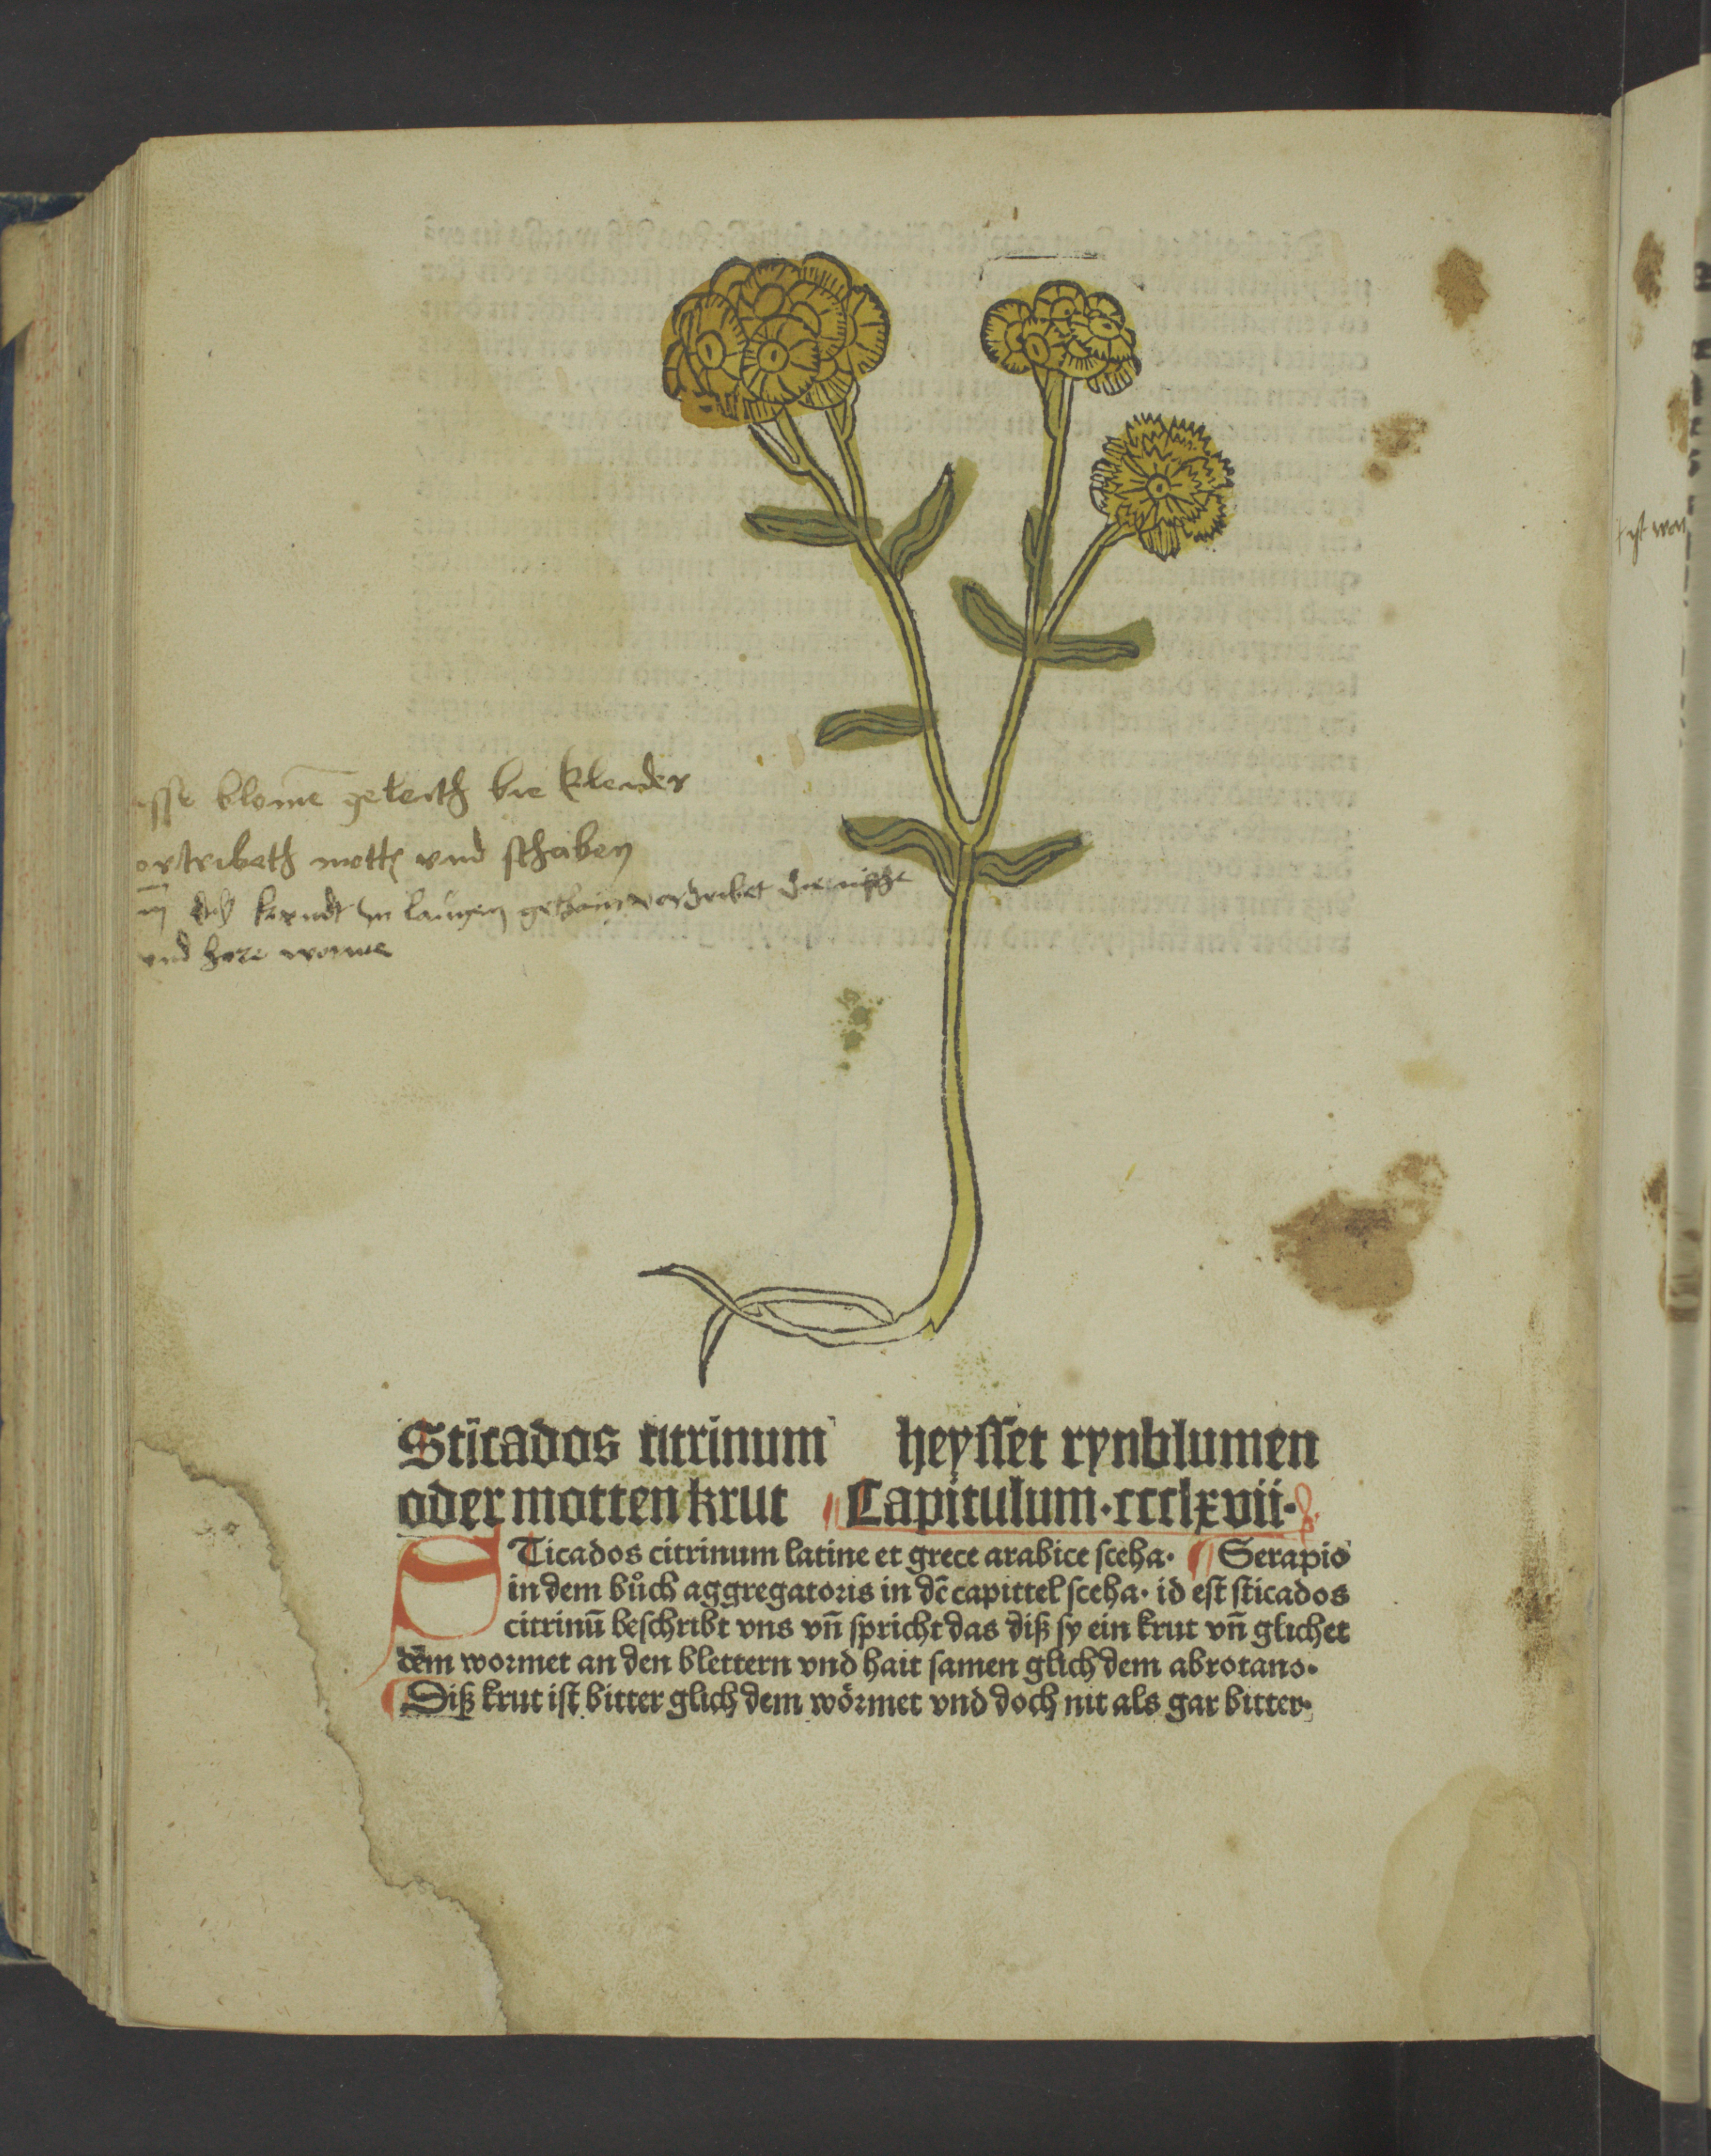 blomē geleith bie kleider
vnd schaben
kraudt in laugen
vnd hare
Sticados citrinum heyſſet rynblumen
oder mottenkrut Capitulum·ccclxvii·
STicados citrinum latine et grece arabice ſceha· Serapio
in dem bůch aggregatoris in dē capittel ſceha· id eſt ſticados
citrinū beſchribt vns vn̄ ſpricht das diß ſy ein krut vn̄ glichet
dem wormet an den blettern vnd hait ſamen glich dem abrotano·
Diß krut iſt bitter glich dem wörmet vnd doch nit als gar bitter·